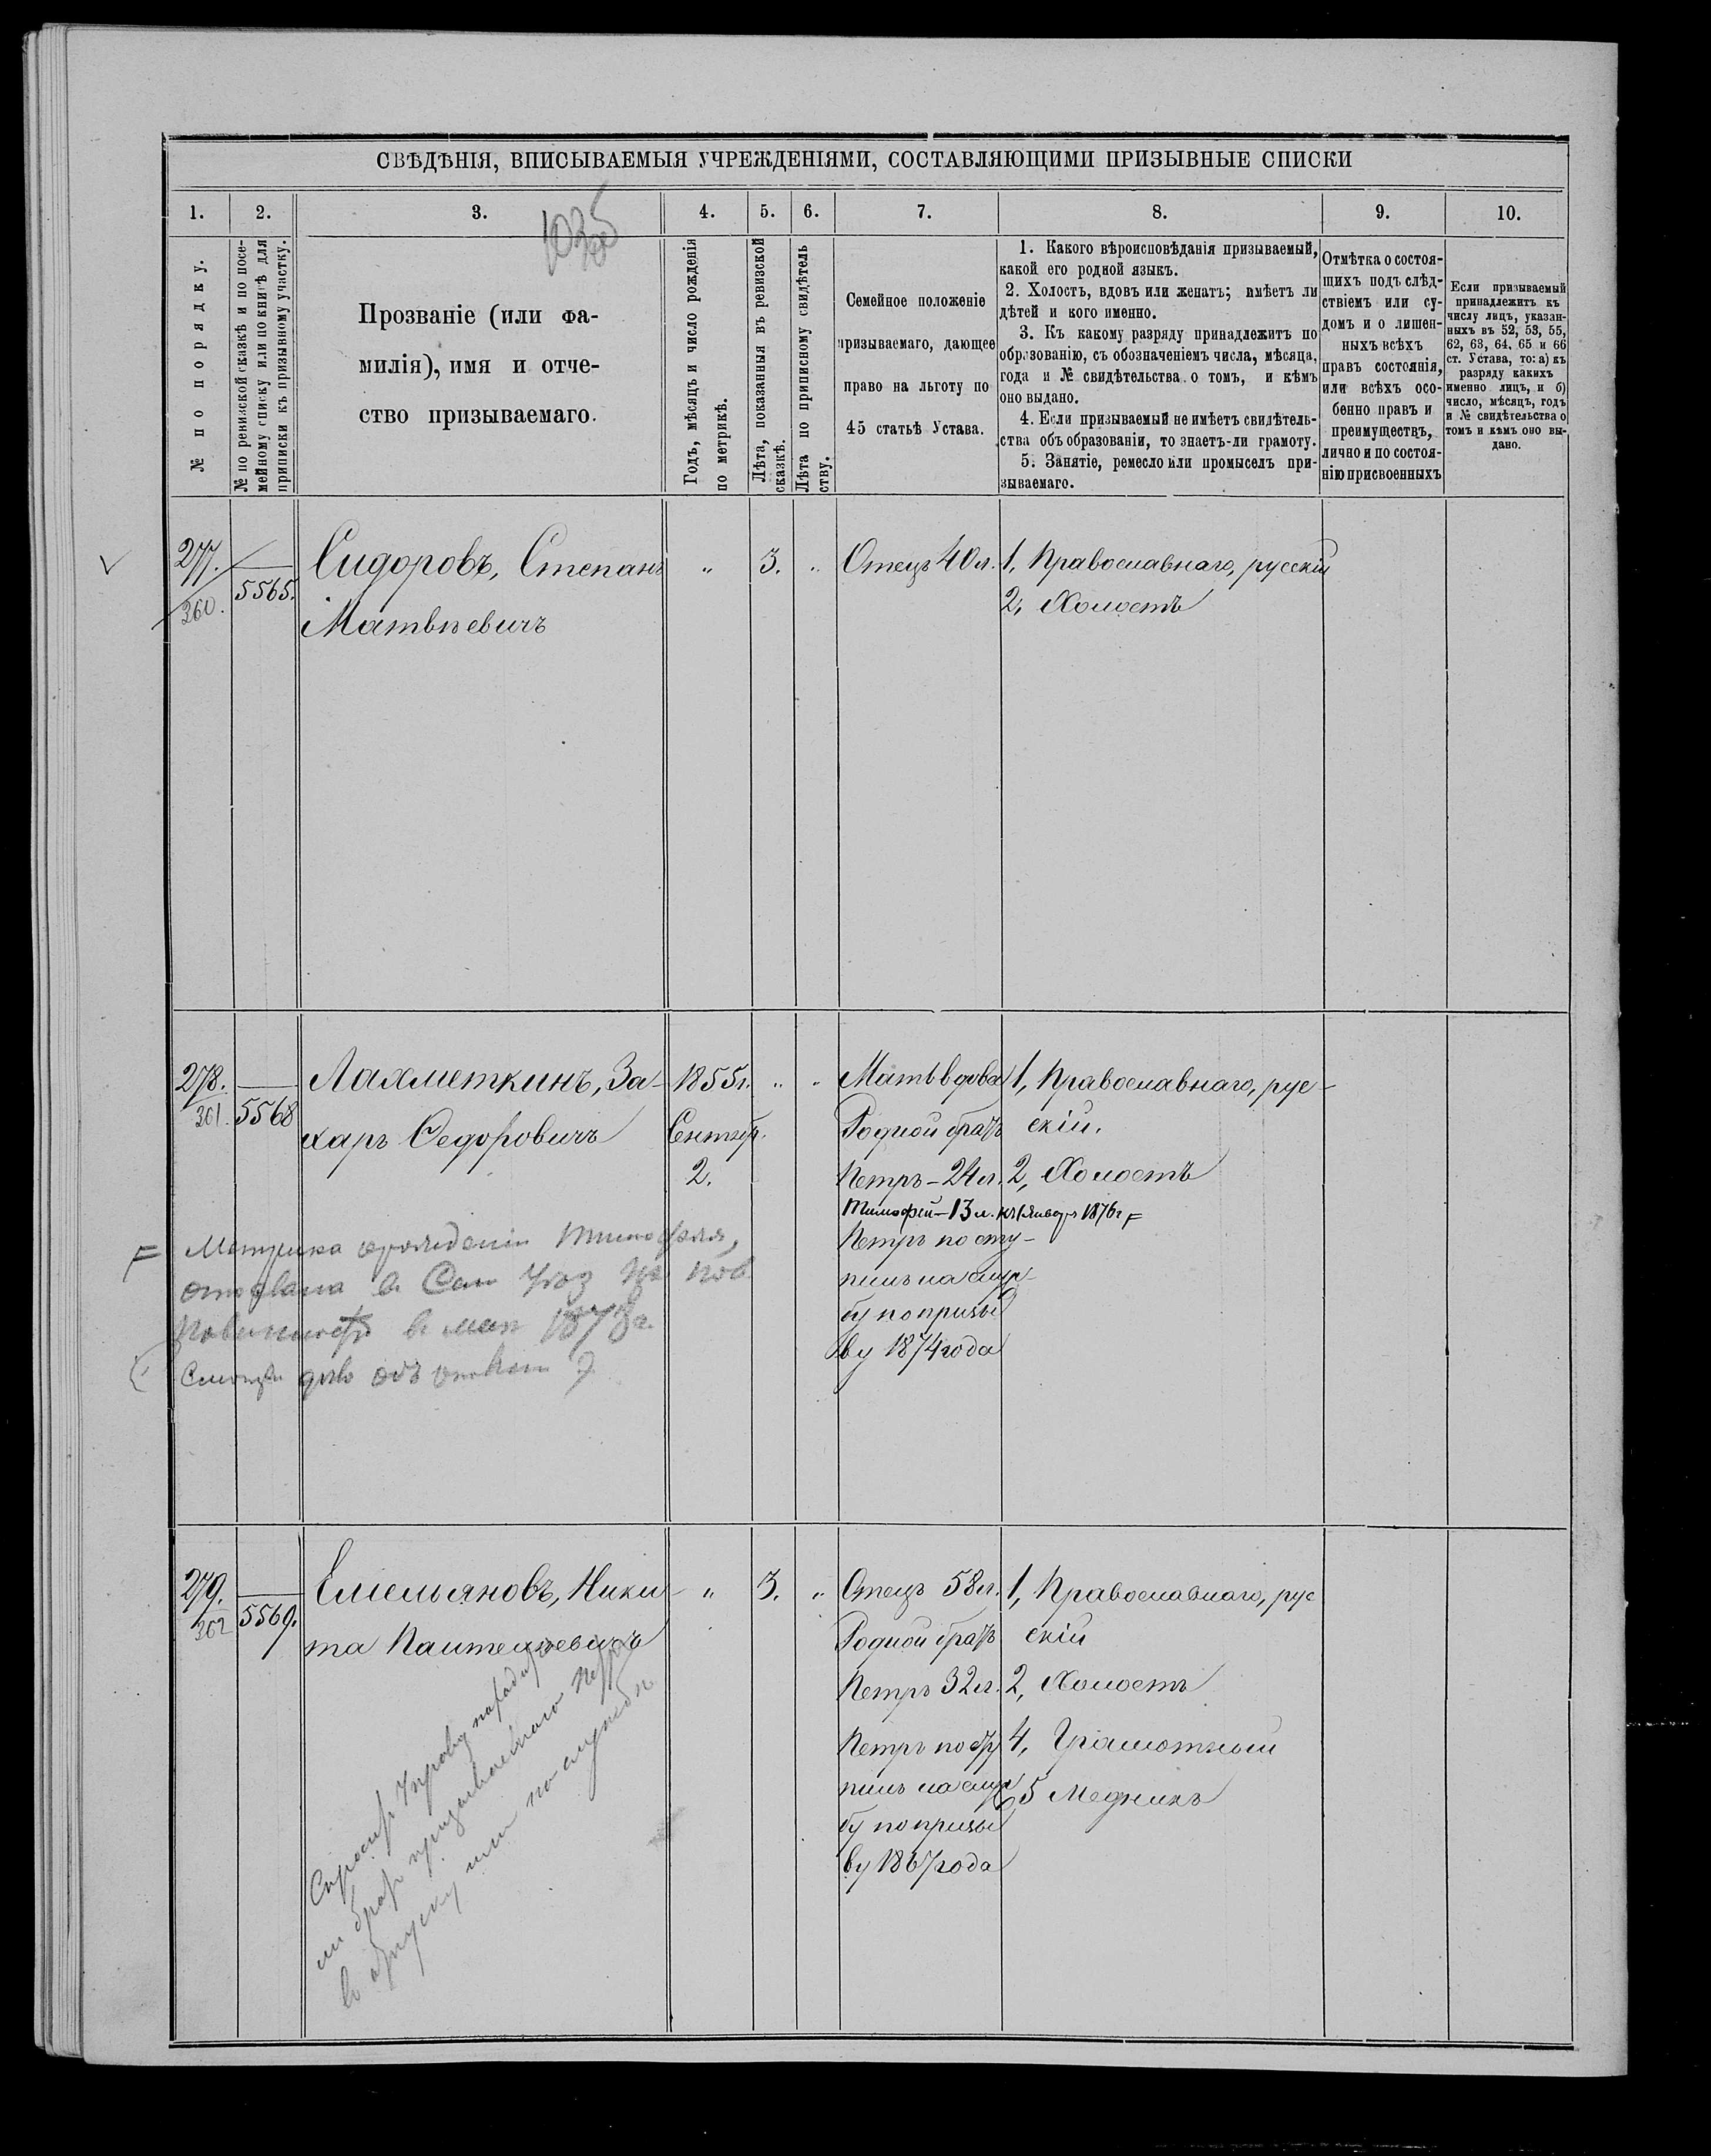 СВѢДѢНІЯ, ВПИСЫВАЕМЫЯ УЧРЕЖДЕНІЯМИ, СОСТАВЛЯЮЩИМИ ПРИЗЫВНЫЕ СПИСКИ
1. 2. 3. 4. 5. 6. 7. 8. 9. 10.
№ по порядку.
№ по ревизской сказкѣ и по посе-
мейному списку или по книгѣ для
приписки къ призывному участку.
Прозваніе (или фа-
милія), имя и отче-
ство призываемаго.
Годъ, мѣсяцъ и число рожденія
по метрикѣ.
Лѣта, показанныя въ ревизской
сказкѣ.
Лѣта по приписному свидѣтель
ству.
Семейное положеніе
призываемаго, дающее
право на льготу по
45 статьѣ Устава.
1. Какого вѣроисповѣданія призываемый,
какой его родной языкъ.
2. Холостъ, вдовъ или женатъ; имѣетъ ли
дѣтей и кого именно.
3. Къ какому разряду принадлежитъ по
образованію, съ обозначеніемъ числа, мѣсяца,
года и № свидѣтельства о томъ, и кѣмъ
оно выдано.
4. Если призываемый не имѣетъ свидѣтель-
ства объ образованіи, то знаетъ-ли грамоту.
5. Занятіе, ремесло или промыселъ при-
зываемаго.
Отмѣтка о состоя-
щихъ подъ слѣд-
ствіемъ или су-
домъ и о лишен-
ныхъ всѣхъ
правъ состоянія,
или всѣхъ осо-
бенно правъ и
преимуществъ,
лично и по состоя-
нію присвоенныхъ
Если призываемый
принадлежитъ къ
числу лицъ, указан-
ныхъ въ 52, 53, 55,
62, 63, 64, 65 и 66
ст. Устава, то: а) къ
разряду какихъ
именно лицъ, и б)
число, мѣсяцъ, годъ
и № свидѣтельства о
томъ и кѣмъ оно вы-
дано.
277.
360.
5565.
Сидоровъ, Степанъ
Матвѣевичъ
„ 3. „
Отецъ 40 л.
1, Православнаго, русскій
2, Холостъ
278.
361.
5568
Лахметкинъ, За-
харъ Ѳедоровичъ
1855 г.
Сентябр.
2.
„ „
Мать вдова
Родной братъ
Петръ - 24 л.
Тимофей - 13 л. къ 1 Январ 1876 г
Петръ посту-
пилъ на служ-
бу по призы
ву 1874 года
1, Православнаго, рус-
скій.
2, Холостъ
Метрика о рожденіи Тимофея,
279.
362
5569.
Емельяновъ, Ники-
та Пантелѣевичъ
„ 3. „
Отецъ 58 л.
Родной братъ
Петръ 32 л.
Петръ посту
пилъ на служ
бу по призы
ву 1867 года
1, Православнаго, рус
скій
2, Холостъ
4, Грамотный
5 Медникъ